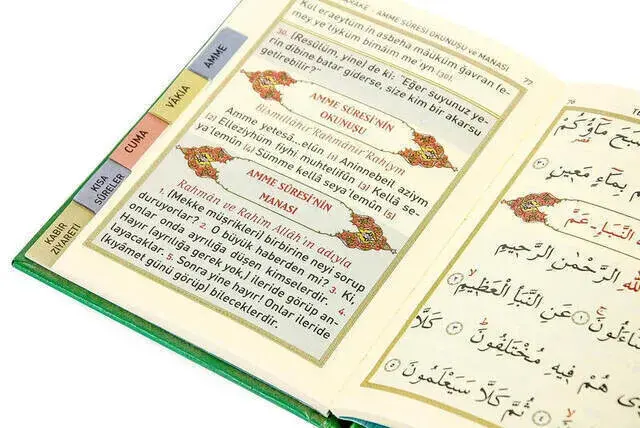 TEBAREKE - AMME SÛRESİ OKUNUŞU ve MANASI
77
Kul eraeytüm in asbeha mâüküm ğavran fe-
mey ye'tiyküm bimâim me'iyn [30].
30. (Resûlüm, yine) de ki: "Eğer suyunuz ye-
rin dibine batar giderse, size kim bir akarsu
getirebilir?"
AMME SÛRESİ'NİN
OKUNUŞU
Bismillâhir'Rahmânir'Rahiym
Amme yetesâ..elûn [1] Aninnebeil, aziym
[2] Elleziyhüm fiyhi muhtelifûn [3] Kellâ se-
ya'lemûn [4] Sümme kellâ seya'lemûn [5]
AMME SÛRESİ'NİN
MANASI
Rahmân ve Rahîm Allâh'ın adıyla
1. (Mekke müşrikleri) birbirine neyi sorup
duruyorlar? 2. O büyük haberden mi? 3. Ki,
onlar onda ayrılığa düşen kimselerdir. 4.
Hayır (ayrılığa gerek yok,) ileride görüp an-
layacaklar. 5. Sonra yine hayır! Onlar ileride
(kıyâmet günü görüp) bileceklerdir.
AMME
VÂKIA
CUMA
KISA
SÛRELER
KABİR
ZİYARETİ
٧٨
مَآؤُكُمْ
بِمَاءٍ مَعِينٍ
النَّبَإِ، عَمَّ
اللهِ الرَّحْمٰنِ الرَّحِيمِ
عَنِ النَّبَأِ الْعَظِيمِ
هُمْ فِيهِ مُخْتَلِفُونَ ٣ كَلَّا
ثُمَّ كَلَّا سَيَعْلَمُونَ ٥